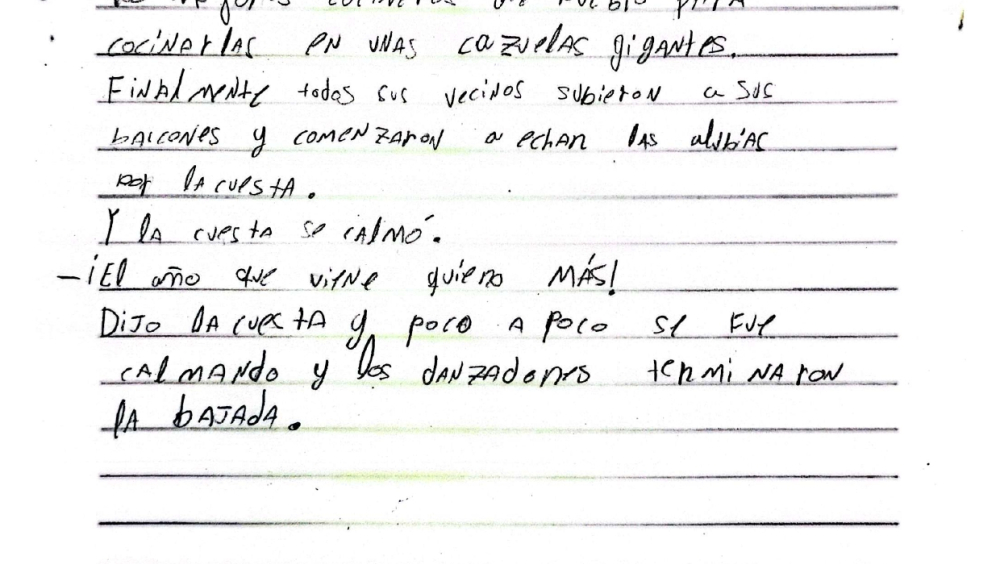 mejores cocineros del pueblo para
cocinarlas en unas cazuelas gigantes.
Finalmente todos sus vecinos subieron a sus
balcones y comenzaron a echar las alubias
por la cuesta.
Y la cuesta se calmó.
-¡El año que viene quiero MÁS!
Dijo la cuesta y poco a poco se fue
calmando y los danzadores terminaron
la bajada.